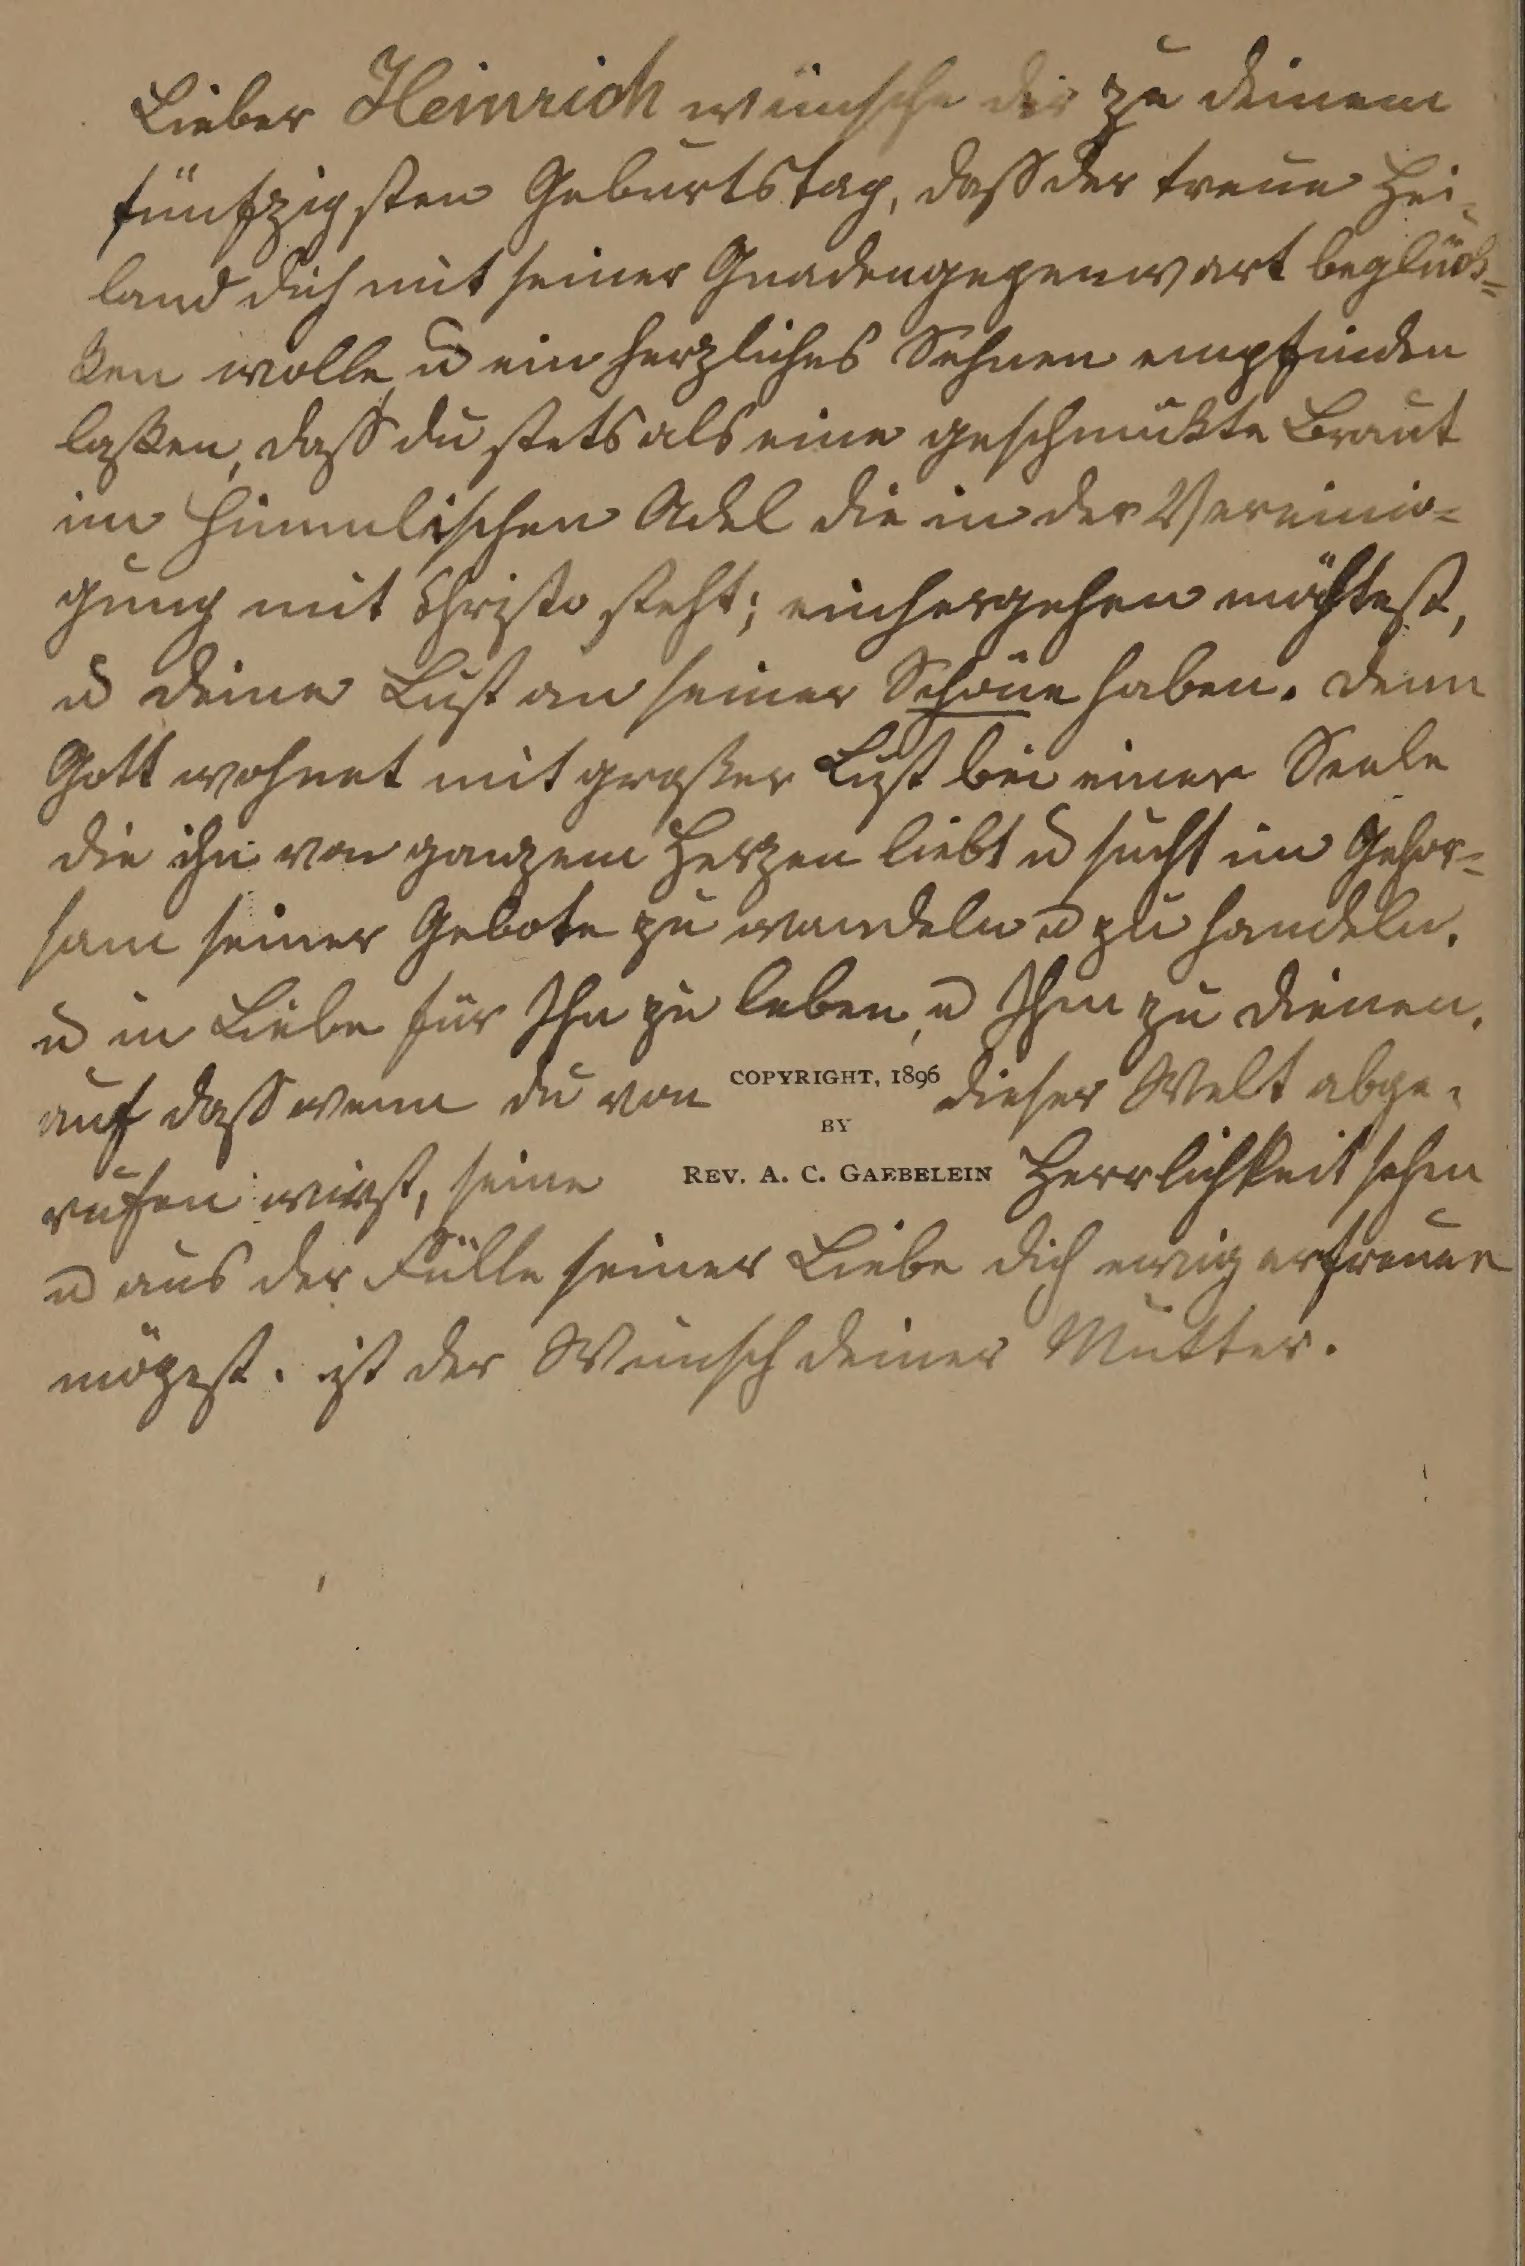 Lieber Heinrich wünsche dir zu deinem
fünfzigsten Geburtstag, daß der treue Hei-
land dich mit seiner Gnadengegenwart beglück=
ken wolle, u ein herzliches Sehnen empfinden
laßen, daß du stets als eine geschmükte Braut
im himmlischen Adel die in der Vereini=
gung mit Christo steht; einhergehen möchtest,
u deine Lust an seiner Schöne haben. denn
Gott wohnet mit großer Lust bei einer Seele
die ihn von ganzem Herzen liebt u sucht im Gehor=
sam seiner Gebote zu wandeln u zu handeln.
u in Liebe für Ihn zu leben, u Ihm zu dienen.
auf daß wenn du von COPYRIGHT, 1896 dieser Welt abge-
BY
rufen wirst, seine REV. A. C. GAEBELEIN Herrlichkeit sehen
u aus der Fülle seiner Liebe dich ewig erfreuen
mögest. ist der Wunsch deiner Mutter.